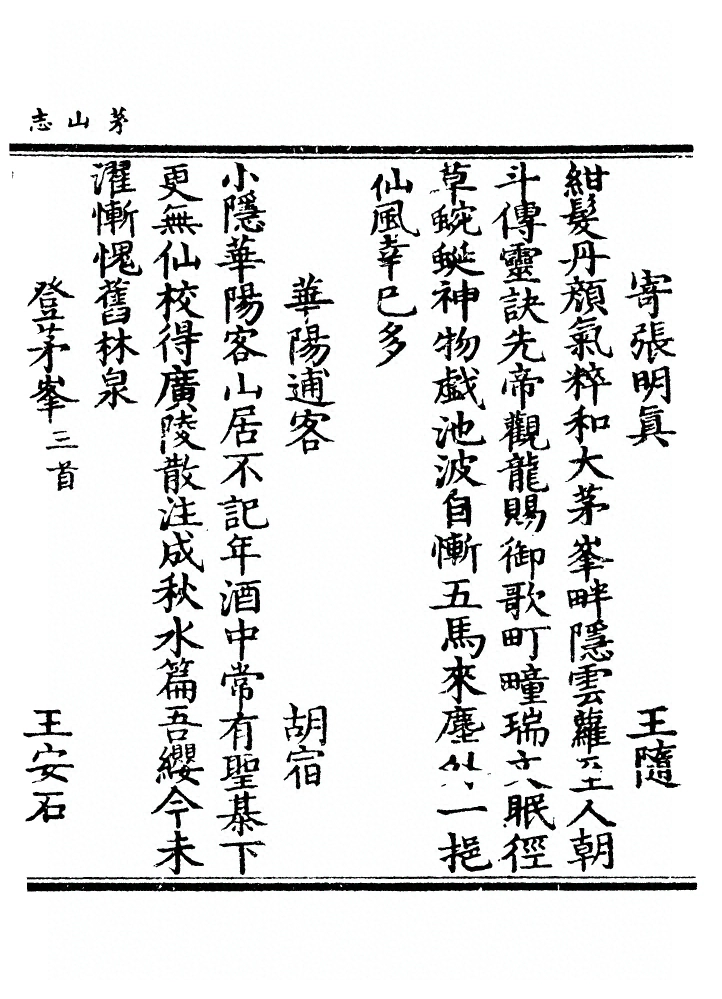 茅山志
寄張明真 王隨
紺髮丹顔氣粹和大茅峯畔隱雲蘿至人朝
斗傳靈訣先帝觀龍賜御歌町疃瑞眠徑
草蜿蜒神物戯池波自慚五馬來塵外一挹
仙風幸已多
華陽逋客 胡宿
小隱華陽客山居不記年酒中常有聖棊下
更無仙校得廣陵散注成秋水篇吾纓今未
濯慚愧舊林泉
登茅峯三首 王安石